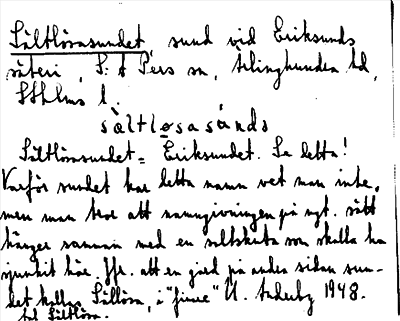 Sältlösasundet, sund vid Eriksunds
säteri, S:t Pers sn, Ärlinghundra hd,
Sthlms l.
sàltløsasánds
Sältlösasundet = Eriksundet. Se detta!
Varför sundet har detta namn vet man inte,
men man tror att namngivningen på ngt. sätt
hänger samman med en saltskuta som skulle ha
sjunkit här. Jfr. att en gård på andra sidan sun-
det kallas Sällösa, i "finne" U. Anderby 1948.
Sältlösa.